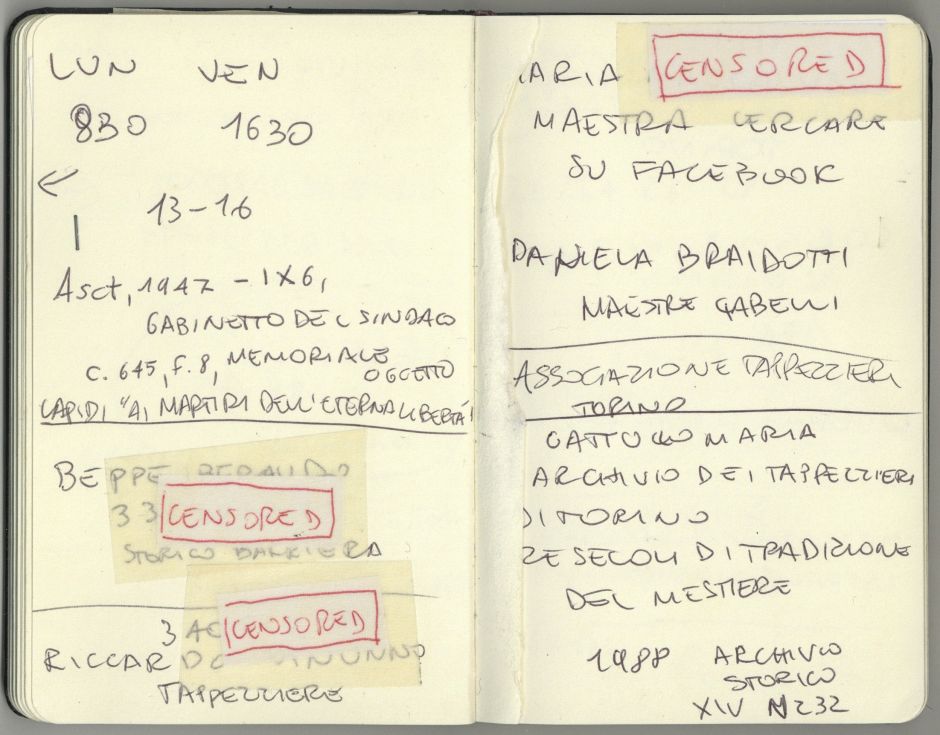 LUN VEN
830 1630
13-16
Asct, 1947 - IX6,
GABINETTO DEL SINDACO
c. 645, f. 8, MEMORIALE
OGGETTO
LAPIDI "AI MARTIRI DELL'ETERNA LIBERTÀ
BEPPE
33 CENSORED
STORICO BANDIERA
3 CENSORED
RICCARDO
TAPPEZZIERE
ARIA CENSORED
MAESTRA CERCARE
SU FACEBOOK
DANIELA BRAIDOTTI
MAESTRE GABELLI
ASSOCIAZIONE TAPPEZZIERI
TORINO
GATTUCCO MARIA
ARCHIVIO DEI TAPPEZZIERI
DI TORINO
RE SECOLI DI TRADIZIONE
DEL MESTIERE
1988 ARCHIVIO
STORICO
XIV N232